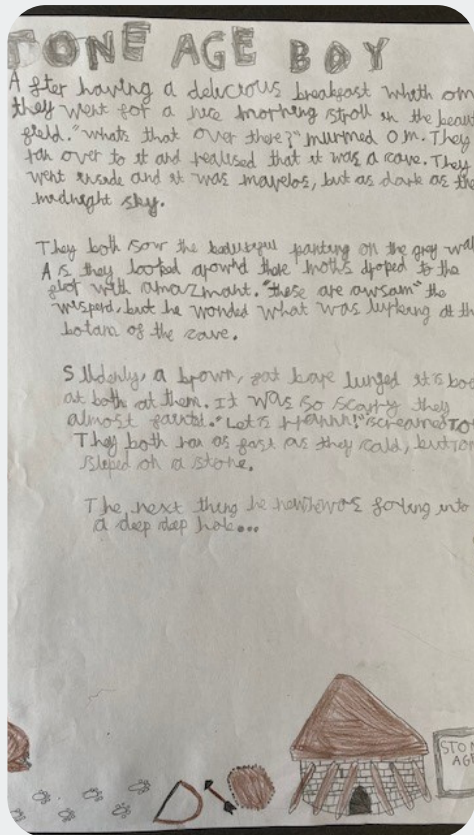 TONE AGE BOY
After having a delicious breakfast whith om
they went for a nice morning stroll in the beaut
field. "whats that over there?" murmed Om. They
ran over to it and realised that it was a cave. They
went inside and it was mavelos, but as dark as the
madnight sky.
They both sow the beautiful panting on the grey wal
As they looked arownd there moths droped to the
flot with amazmant. "these are awsam" the
wisperd, but he wonded what was lurking at th
botam of the cave.
Suddenly, a brown, fat bare lunged it's bo
at both at them. It was so scarry they
almost fainted. "Let's " screamed TO
They both ran as fast as they cald, but Tom
sloped on a stone.
The next thing he new he was forling into
a deep deep hole...
STON
AGE